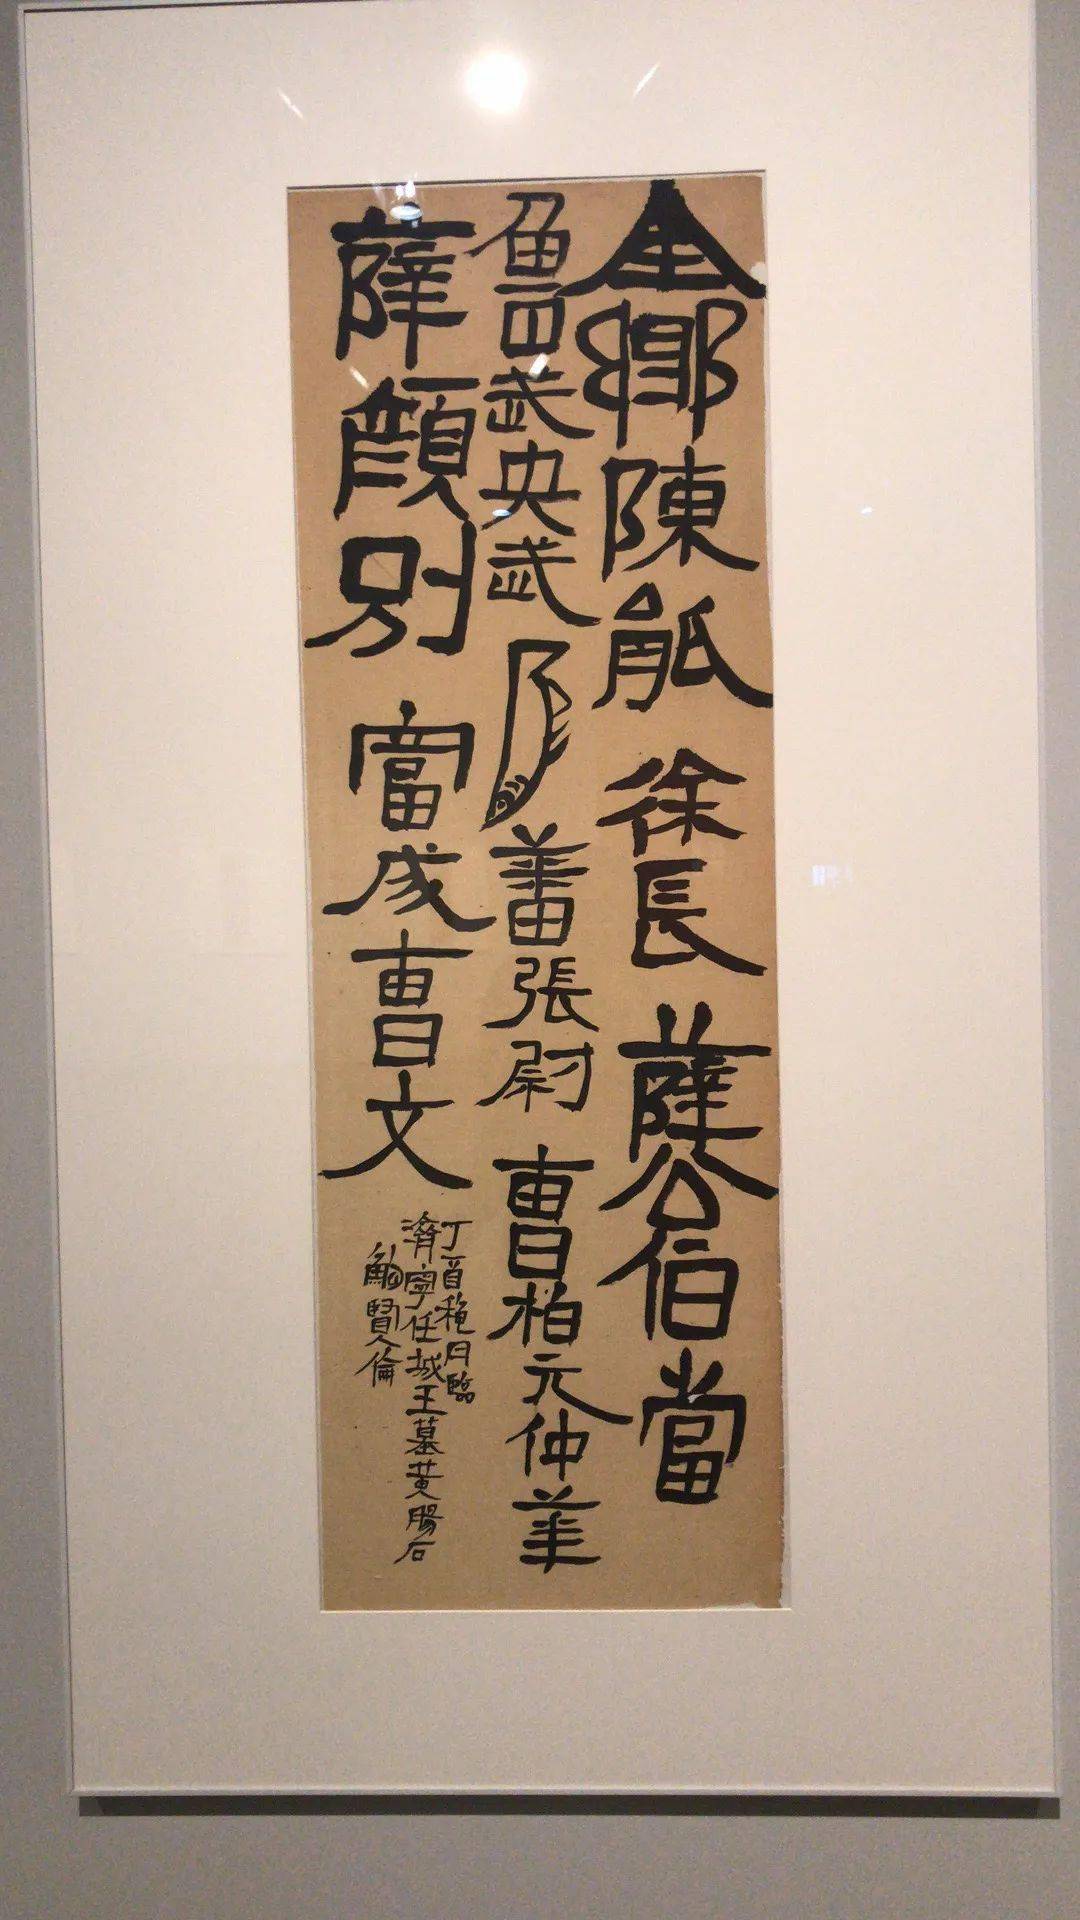 金鄉陳能徐長薛公伯當
魯武央武蕃張尉曹柏元仲華
薛顏別富成曹文
丁酉穐月臨
濟寧任城王墓黃腸石
賢倫